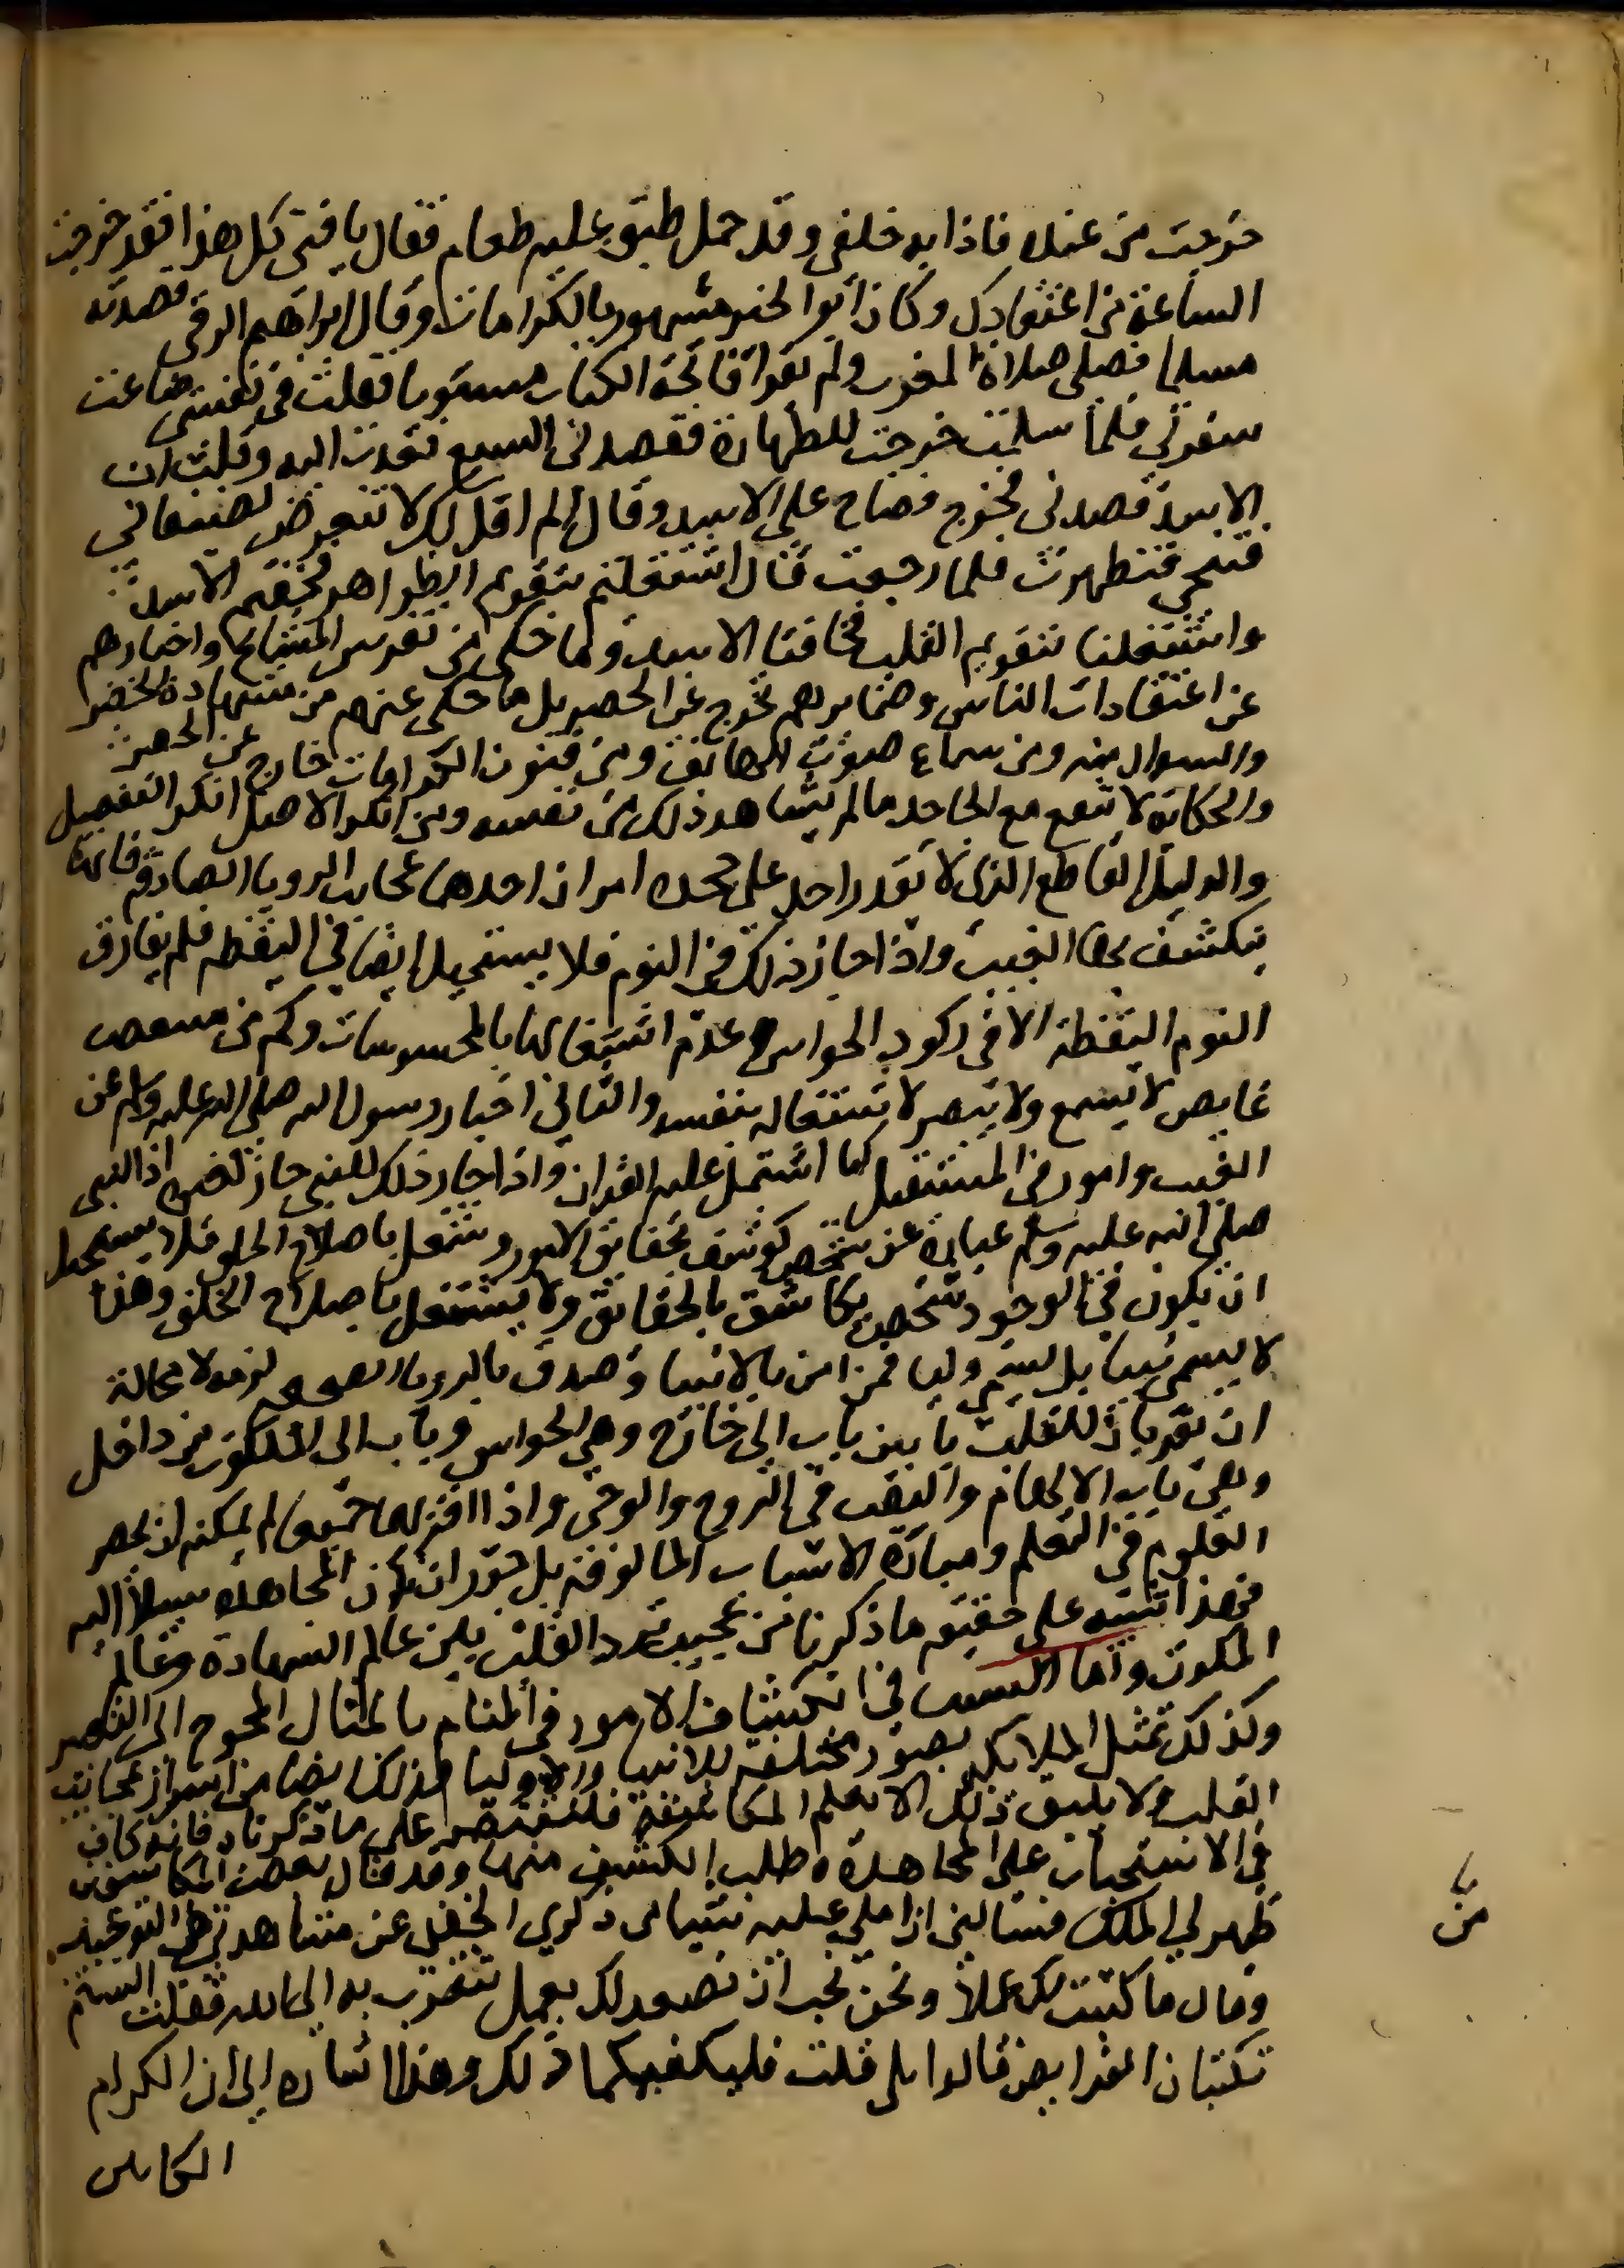 خرجت من عنده فاذا به خلفي وقد حمل طبق عليه طعام فقال يا فتى كل هذا فقد خرجت
الساعة من اعتقادك وكان ابو الخير مشهور بالكرامات وقال ابراهيم الرقي قصدته
مسلما فصلى صلاة المغرب ولم يقرا فاتحة الكتاب مستويا فقلت في نفسي ضاعت
سفرتي فلما سلمت خرجت للطهارة فقصدني السبع فعدت اليه وقلت ان
الاسد قصدني فخرج فصاح على الاسد وقال الم اقل لك لا تتعرض لضيفاني
فتنحى فتطهرت فلما رجعت قال اشتغلتم بتقويم الظواهر فخفتم الاسد
واشتغلنا بتقويم القلب فخافنا الاسد وما حكي من تفرس المشايخ واخبارهم
عن اعتقادات الناس وضمايرهم يخرج عن الحصر بل ما حكي عنهم من مشاهدة الخضر
والسوال منه ومن سماع صوت الهاتف ومن فنون الكرامات خارج عن الحصر
والحكاية لا تنفع مع الجاحد ما لم يشاهد ذلك من نفسه ومن انكر الاصل انكر التفصيل
والدليل القاطع الذي لا يقدر احد على جحده امران احدهما عجايب الرويا الصادقة فانه
ينكشف بها الغيب واذا جاز ذلك في النوم فلا يستحيل ايضا في اليقظه فلم يفارق
النوم اليقظة الا في ركود الحواس وعدم اشتغالها بالمحسوسات وكم من مستيقظ
غايص لا يسمع ولا يبصر لاشتغاله بنفسه والثاني اخبار رسول الله صلى الله عليه وسلم عن
الغيب وامور في المستقبل كما اشتمل عليه القران واذا جاز ذلك للنبي جاز لغيره اذ النبي
صلى الله عليه وسلم عبارة عن شخص كوشف بحقايق الامور وشغل باصلاح الخلق فلا يستحيل
ان يكون في الوجود شخص مكاشف بالحقايق ولا يشتغل باصلاح الخلق وهذا
لا يسمى نبيا بل يسمى وليا فمن امن بالانبيا وصدق بالرويا الصحيحه لزمه لا محالة
ان يقر بان للقلب بابين باب الى خارج وهي الحواس وباب الى الملكوت من داخل
وهي باب الالهام والنفث في الروح والوحي واذا اقر بهما جميعا لم يمكنه ان يحصر
العلوم في التعلم ومباشرة الاسباب المالوفة بل جوز ان تكون المجاهدة سبيلا اليه
فهذا تنبيه على حقيقه ما ذكرنا من عجيب تردد القلب بين عالم الشهادة وعالم
الملكوت واما السبب في انكشاف الامور في المنام بالمثال المحوج الى التعبير
وكذلك تمثل الملايكه بصور مختلفة للانبيا والاوليا فذلك ايضا من اسرار عجايب
القلب ولا يليق ذلك الا بعلم المكاشفة فلنقتصر على ما ذكرناه فانه كاف
في الاستحباب على المجاهدة وطلب الكشف منها وقد قال بعض المكاشفين
ظهر لي الملك فسالني ان املي عليه شيئا من ذكري الخفي عن مشاهدتي من التوحيد
وقال ما كتبت لك عملا ونحن نحب ان نصعد لك بعمل تتقرب به الى الله فقلت الستما
تكتبان الفرايض قالوا بلى قلت فليكفيكما ذلك وهذا اشارة الى ان الكرام
الكاتبين
من